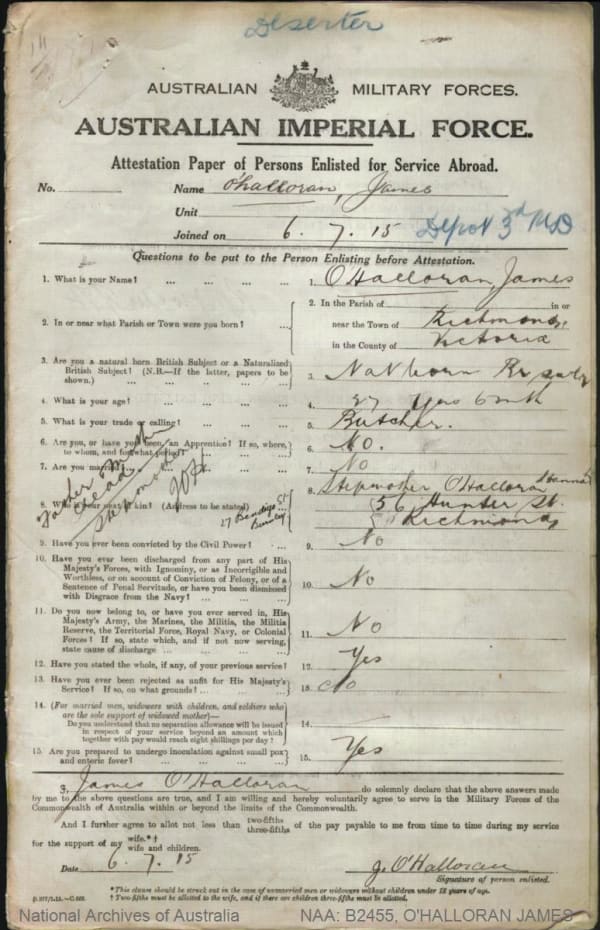 Deserter
AUSTRALIAN MILITARY FORCES.
AUSTRALIAN IMPERIAL FORCE.
Attestation Paper of Persons Enlisted for Service Abroad.
No. Name O'Halloran, James
Unit
Joined on 6. 7. 15 Depot 3rd MD
Questions to be put to the Person Enlisting before Attestation.
1. What is your Name? ... ... ... ... 1. O'Halloran, James
2. In or near what Parish or Town were you born? ... 2. In the Parish of in or
near the Town of Richmond,
in the County of Victoria
3. Are you a natural born British Subject or a Naturalized
British Subject? (N.B.—If the latter, papers to be
shown.) ... ... ... ... 3. Nat born Br
4. What is your age? ... ... ... ... 4. 27 yrs 6 mth
5. What is your trade or calling? ... ... ... 5. Butcher.
6. Are you, or have you been, an Apprentice? If so, where,
to whom, and for what period? ... ... 6. No.
7. Are you married? 7. No
8. Who is your next of kin? (Address to be stated) ... 8 Stepmother O'Halloran Hannah
56 Hunter St.
Richmond
Father & Mother
dead
Stepmother
27 Bendigo St
Burnley
9. Have you ever been convicted by the Civil Power? ... 9. No
10. Have you ever been discharged from any part of His
Majesty's Forces, with Ignominy, or as Incorrigible and
Worthless, or on account of Conviction of Felony, or of a
Sentence of Penal Servitude, or have you been dismissed
with Disgrace from the Navy? ... ... ... 10. No
11. Do you now belong to, or have you ever served in, His
Majesty's Army, the Marines, the Militia, the Militia
Reserve, the Territorial Force, Royal Navy, or Colonial
Forces? If so, state which, and if not now serving,
state cause of discharge ... ... ... 11. No
12. Have you stated the whole, if any, of your previous service? 12. Yes
13. Have you ever been rejected as unfit for His Majesty's
Service? If so, on what grounds? ... ... ... 13 No
14. (For married men, widowers with children, and soldiers who
are the sole support of widowed mother)—
Do you understand that no separation allowance will be issued
in respect of your service beyond an amount which
together with pay would reach eight shillings per day? 14.
15. Are you prepared to undergo inoculation against small pox
and enteric fever? ... ... ... ... 15. Yes
I, James O'Halloran do solemnly declare that the above answers made
by me to the above questions are true, and I am willing and hereby voluntarily agree to serve in the Military Forces of the
Commonwealth of Australia within or beyond the limits of the Commonwealth.
And I further agree to allot not less than two-fifths three-fifths of the pay payable to me from time to time during my service
for the support of my wife.*† wife and children.
Date 6. 7. 15 J. O'Halloran
Signature of person enlisted.
*This clause should be struck out in the case of unmarried men or widowers without children under 18 years of age.
† Two-fifths must be allotted to the wife, and if there are children three-fifths must be allotted.
National Archives of Australia NAA: B2455, O'HALLORAN JAMES